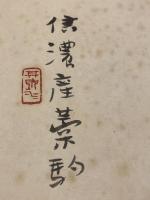 信濃産藁駒